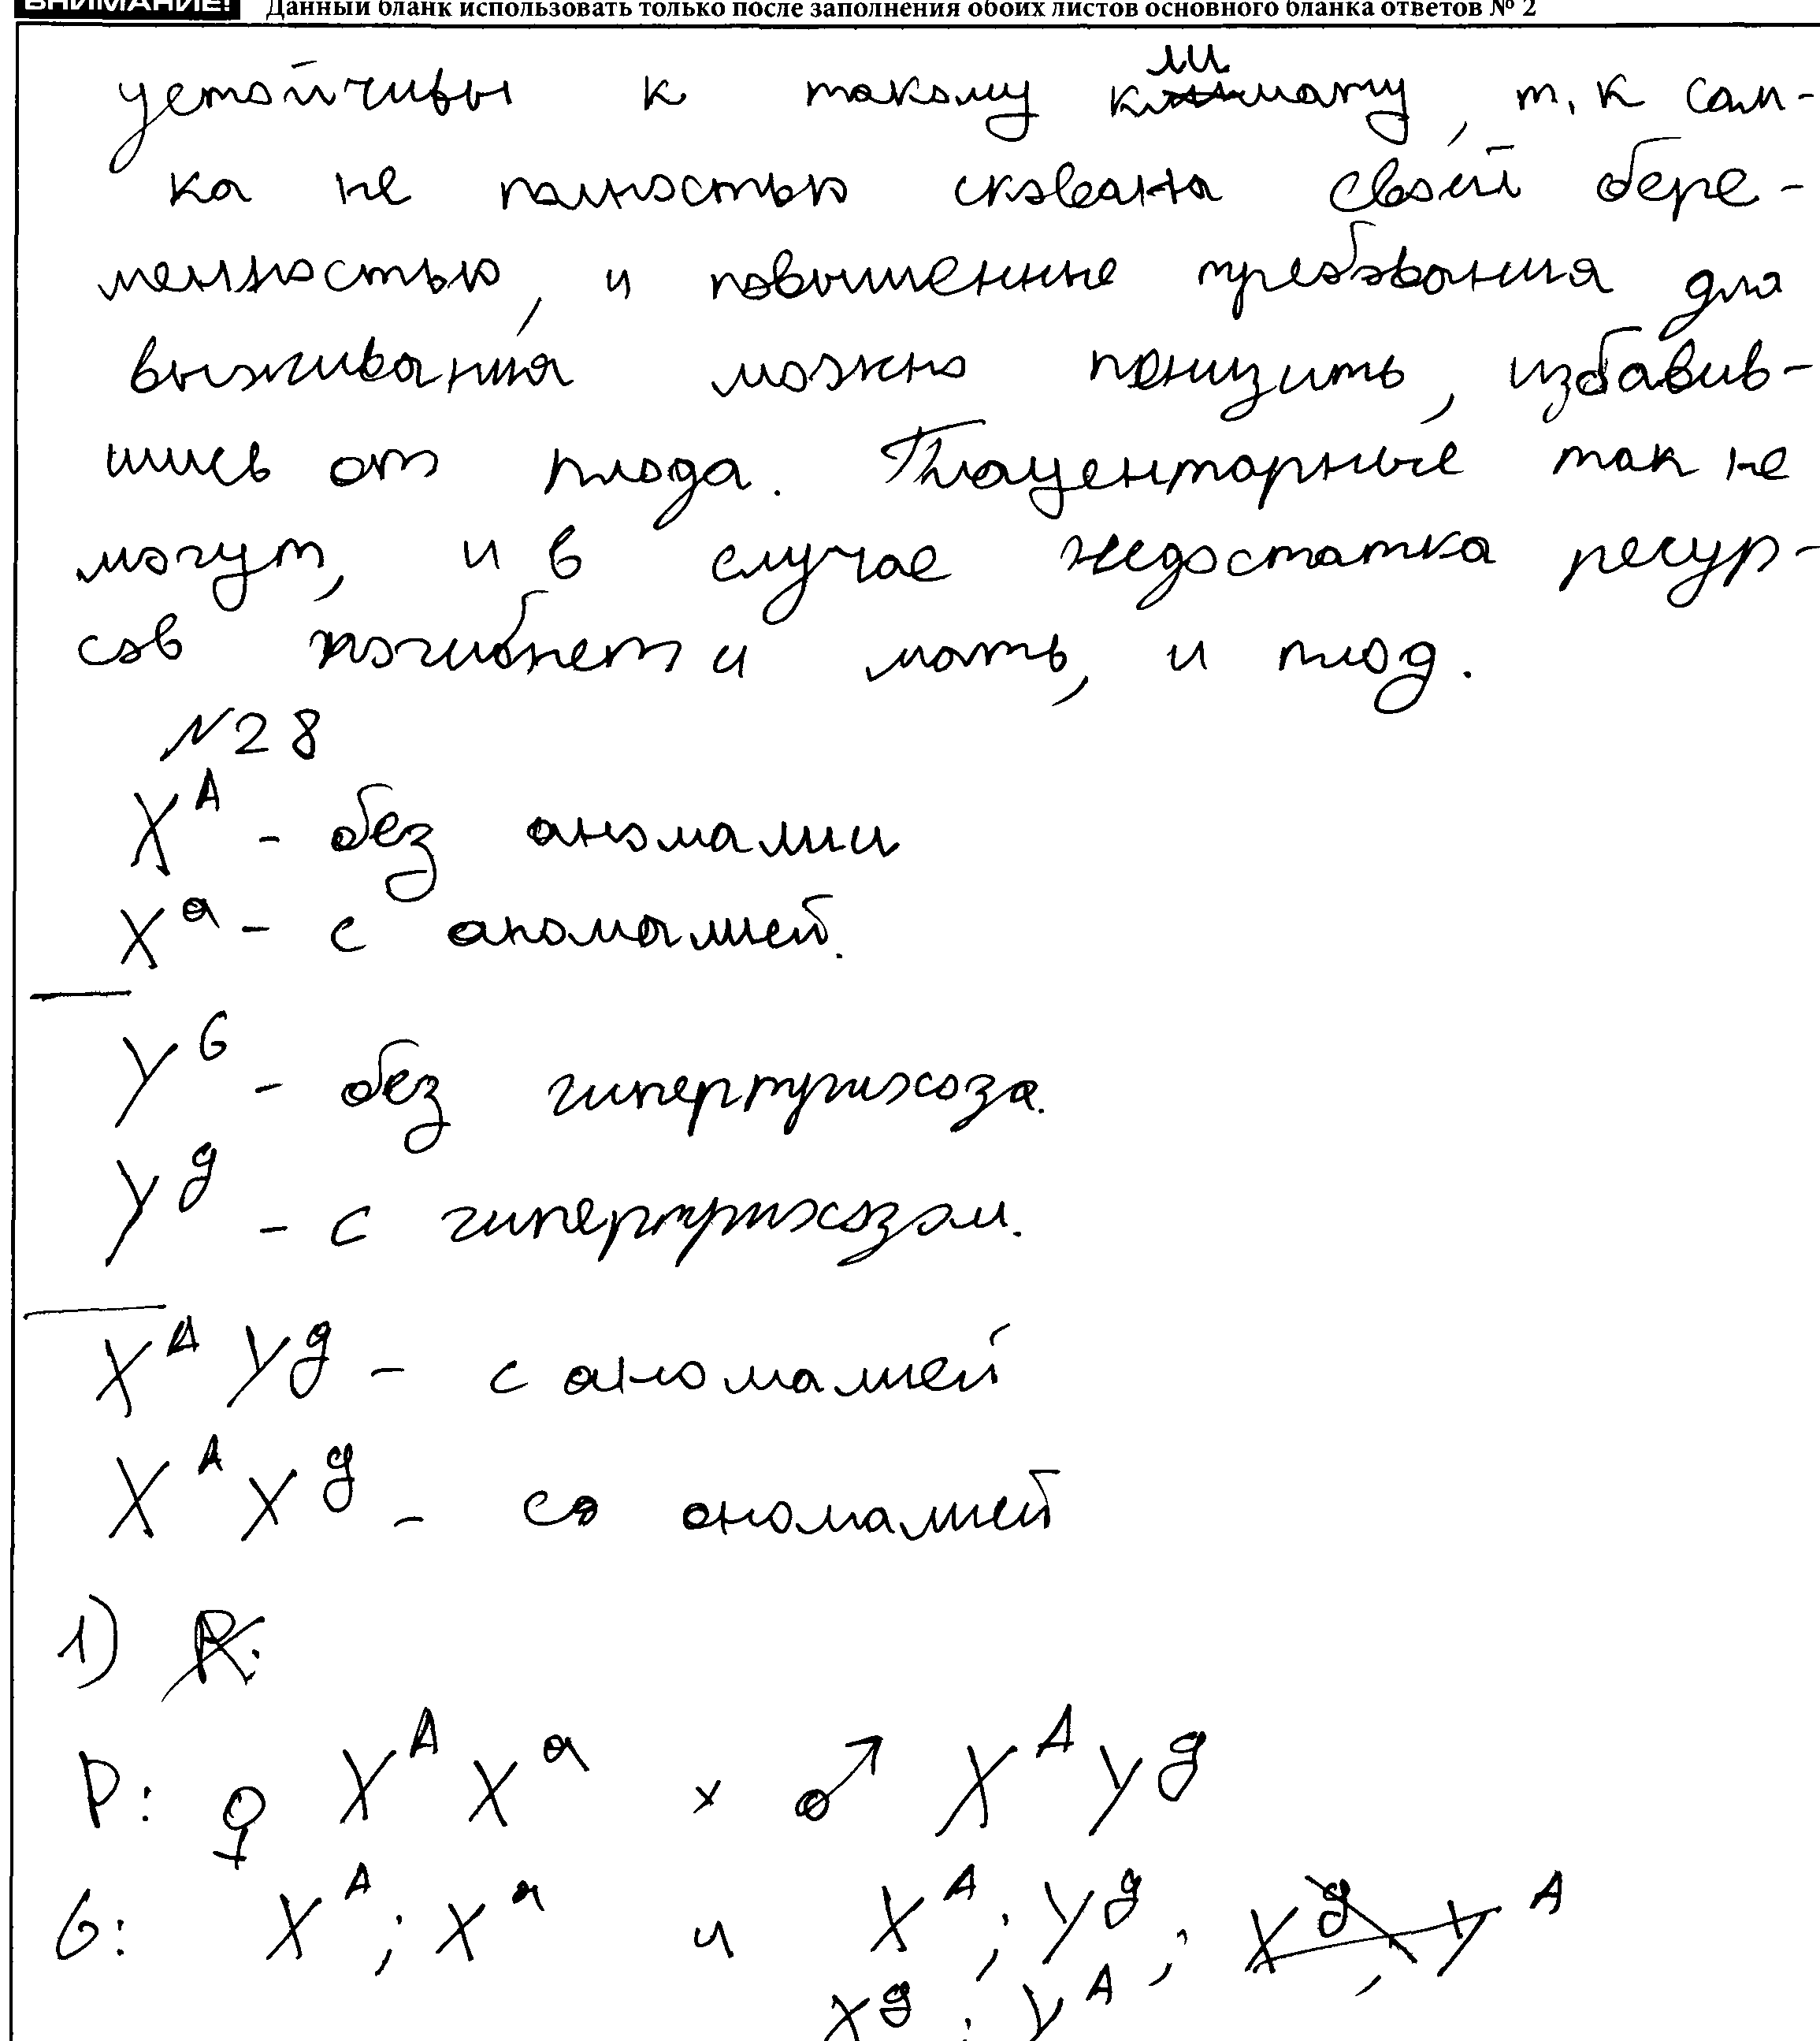 ВНИМАНИЕ! Данный бланк использовать только после заполнения обоих листов основного бланка ответов № 2
устойчивы к такому климату, т.к сам-
ка не полностью скована своей бере-
менностью, и повышенные требования для
выживания можно понизить, избавив-
шись от плода. Плацентарные так не
могут, и в случае недостатка ресур-
сов погибнет и мать, и плод.
N28
X^A - без аномалии
X^a - с аномалией.
Y^G - без гипертрихоза.
Y^g - с гипертрихозом.
X^A Y^g - с аномалией
X^A X^g - со аномалией
1) P:
P: ♀ X^A X^a × ♂ X^A Y^g
G: X^A; X^a и X^A; Y^g; X^g, Y^A
X^g; Y^A